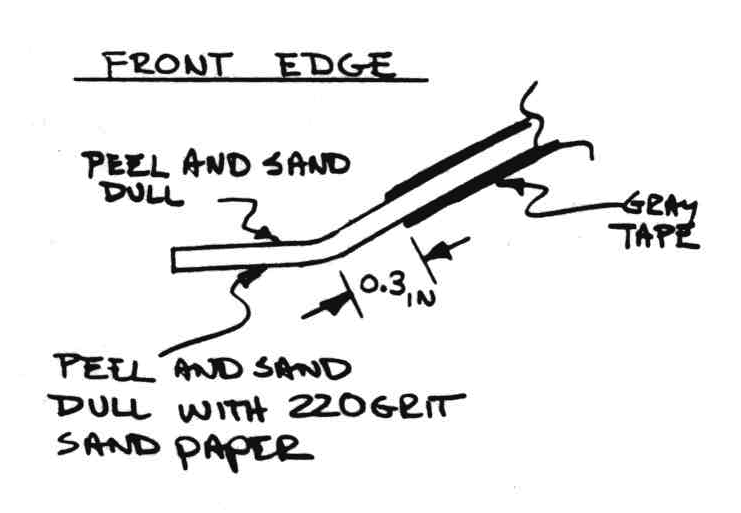 FRONT EDGE
PEEL AND SAND
DULL
GRAY
TAPE
0.3 IN
PEEL AND SAND
DULL WITH 220 GRIT
SAND PAPER